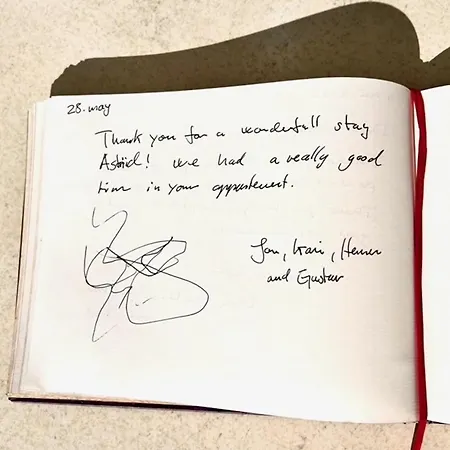 28. may
Thank you for a wonderfull stay
Astrid! We had a really good
time in your appartement.
Jon, Kari,
and Gustav